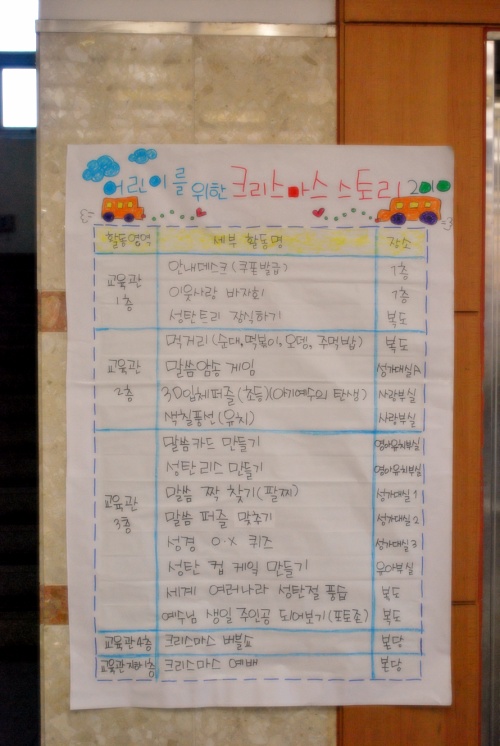 어린이를 위한 크리스마스 스토리 2010
활동영역 세부 활동명 장소
교육관 1층
안내데스크(쿠폰발급) 1층
이웃사랑 바자회 1층
성탄트리 장식하기 복도
교육관 2층
먹거리(순대,떡볶이,오뎅,주먹밥) 복도
말씀암송 게임 성가대실A
3D입체퍼즐(초등)(아기예수의 탄생) 사랑부실
색칠풍선(유치) 사랑부실
교육관 3층
말씀카드 만들기 영아유치부실
성탄리스 만들기 영아유치부실
말씀 짝 찾기(팔찌) 성가대실1
말씀 퍼즐 맞추기 성가대실2
성경 O·X 퀴즈 성가대실3
성탄 컵 케익 만들기 유아부실
세계 여러나라 성탄절 풍습 복도
예수님 생일 주인공 되어보기(포토존) 복도
교육관4층 크리스마스 버블쇼 본당
교육관지하1층 크리스마스 예배 본당